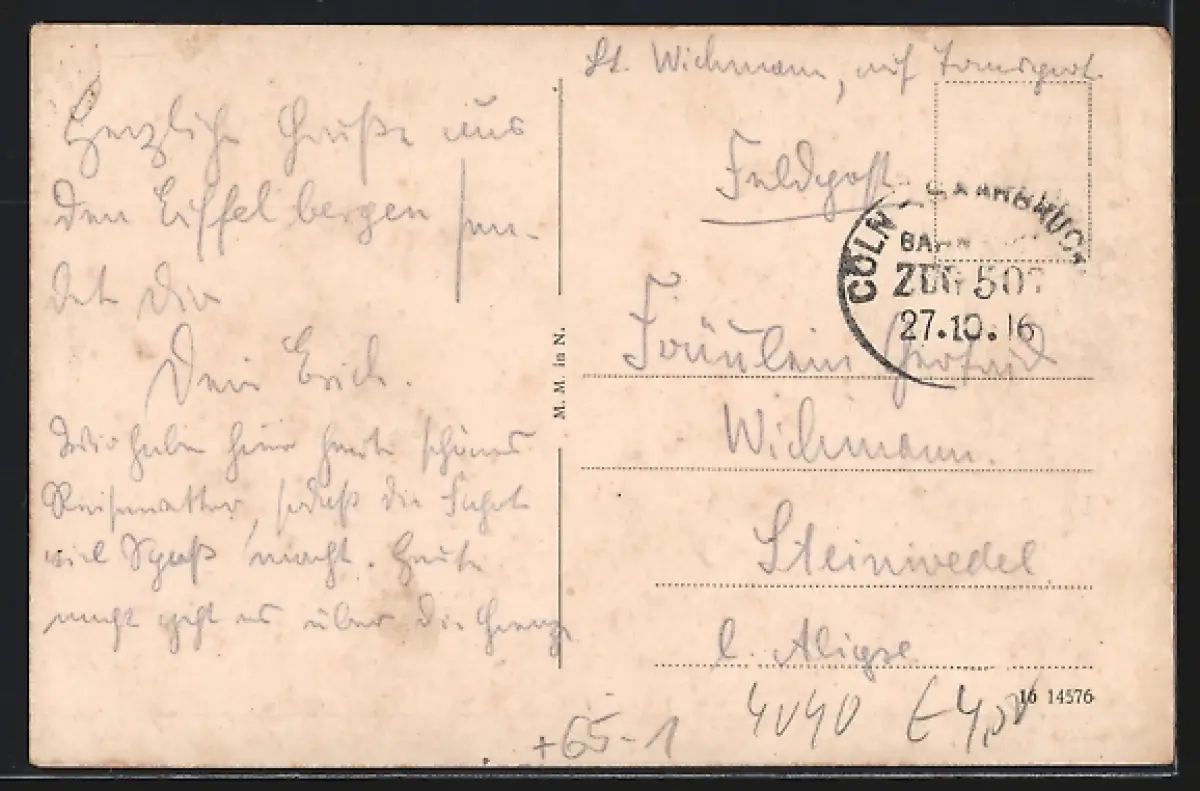 Herzliche Grüße aus
den Eiffelbergen sen-
det Dir
Dein Erich.
Wir haben hier heute schönes
Reisewetter, sodaß die Fahrt
viel Spaß macht. Heute
nacht geht es über die Grenze
M. M. in N.
Lt. Wichmann, auf Transport
Feldpost
CÖLN - SAARBRÜCK
BAHN
ZUG 507
27.10.16
Fräulein Gertrud
Wichmann.
Steinwedel
b. Aligse
16 14576
4040 £ 4,00
+65-1